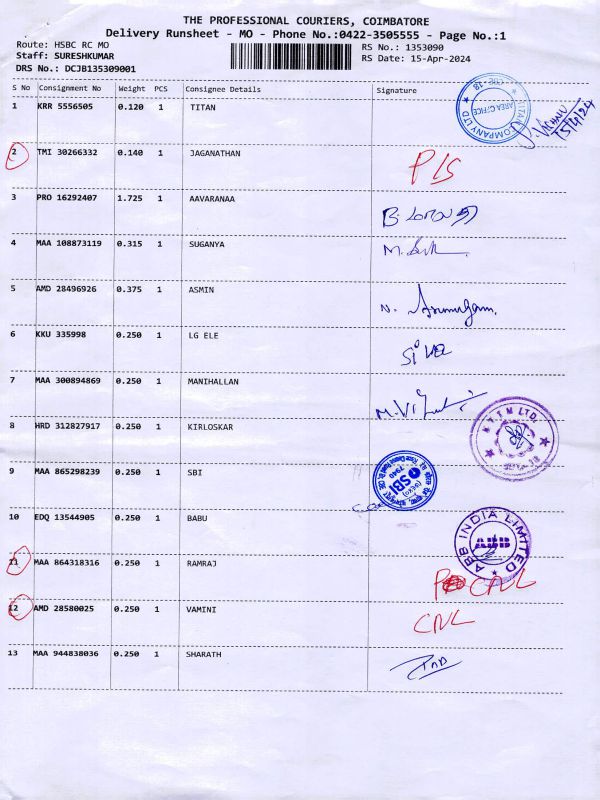 THE PROFESSIONAL COURIERS, COIMBATORE
Delivery Runsheet - MO - Phone No.:0422-3505555 - Page No.:1
Route: HSBC RC MO
RS No.: 1353090
Staff: SURESHKUMAR
RS Date: 15-Apr-2024
DRS No.: DCJB135309001
S No Consignment No Weight PCS Consignee Details Signature
1 KRR 5556505 0.120 1 TITAN
TITAN COMPANY LTD
AREA OFFICE
15/4/24
2 TMI 30266332 0.140 1 JAGANATHAN
P/S
3 PRO 16292407 1.725 1 AAVARANAA
4 MAA 108873119 0.315 1 SUGANYA
5 AMD 28496926 0.375 1 ASMIN
N. Arumugam.
6 KKU 335998 0.250 1 LG ELE
Siva
7 MAA 300894869 0.250 1 MANIHALLAN
8 HRD 312827917 0.250 1 KIRLOSKAR
LTD.
9 MAA 865298239 0.250 1 SBI
SBI
10 EDQ 13544905 0.250 1 BABU
ABB INDIA LIMITED
ABB
11 MAA 864318316 0.250 1 RAMRAJ
CNL
12 AMD 28580025 0.250 1 VAMINI
CNL
13 MAA 944838036 0.250 1 SHARATH